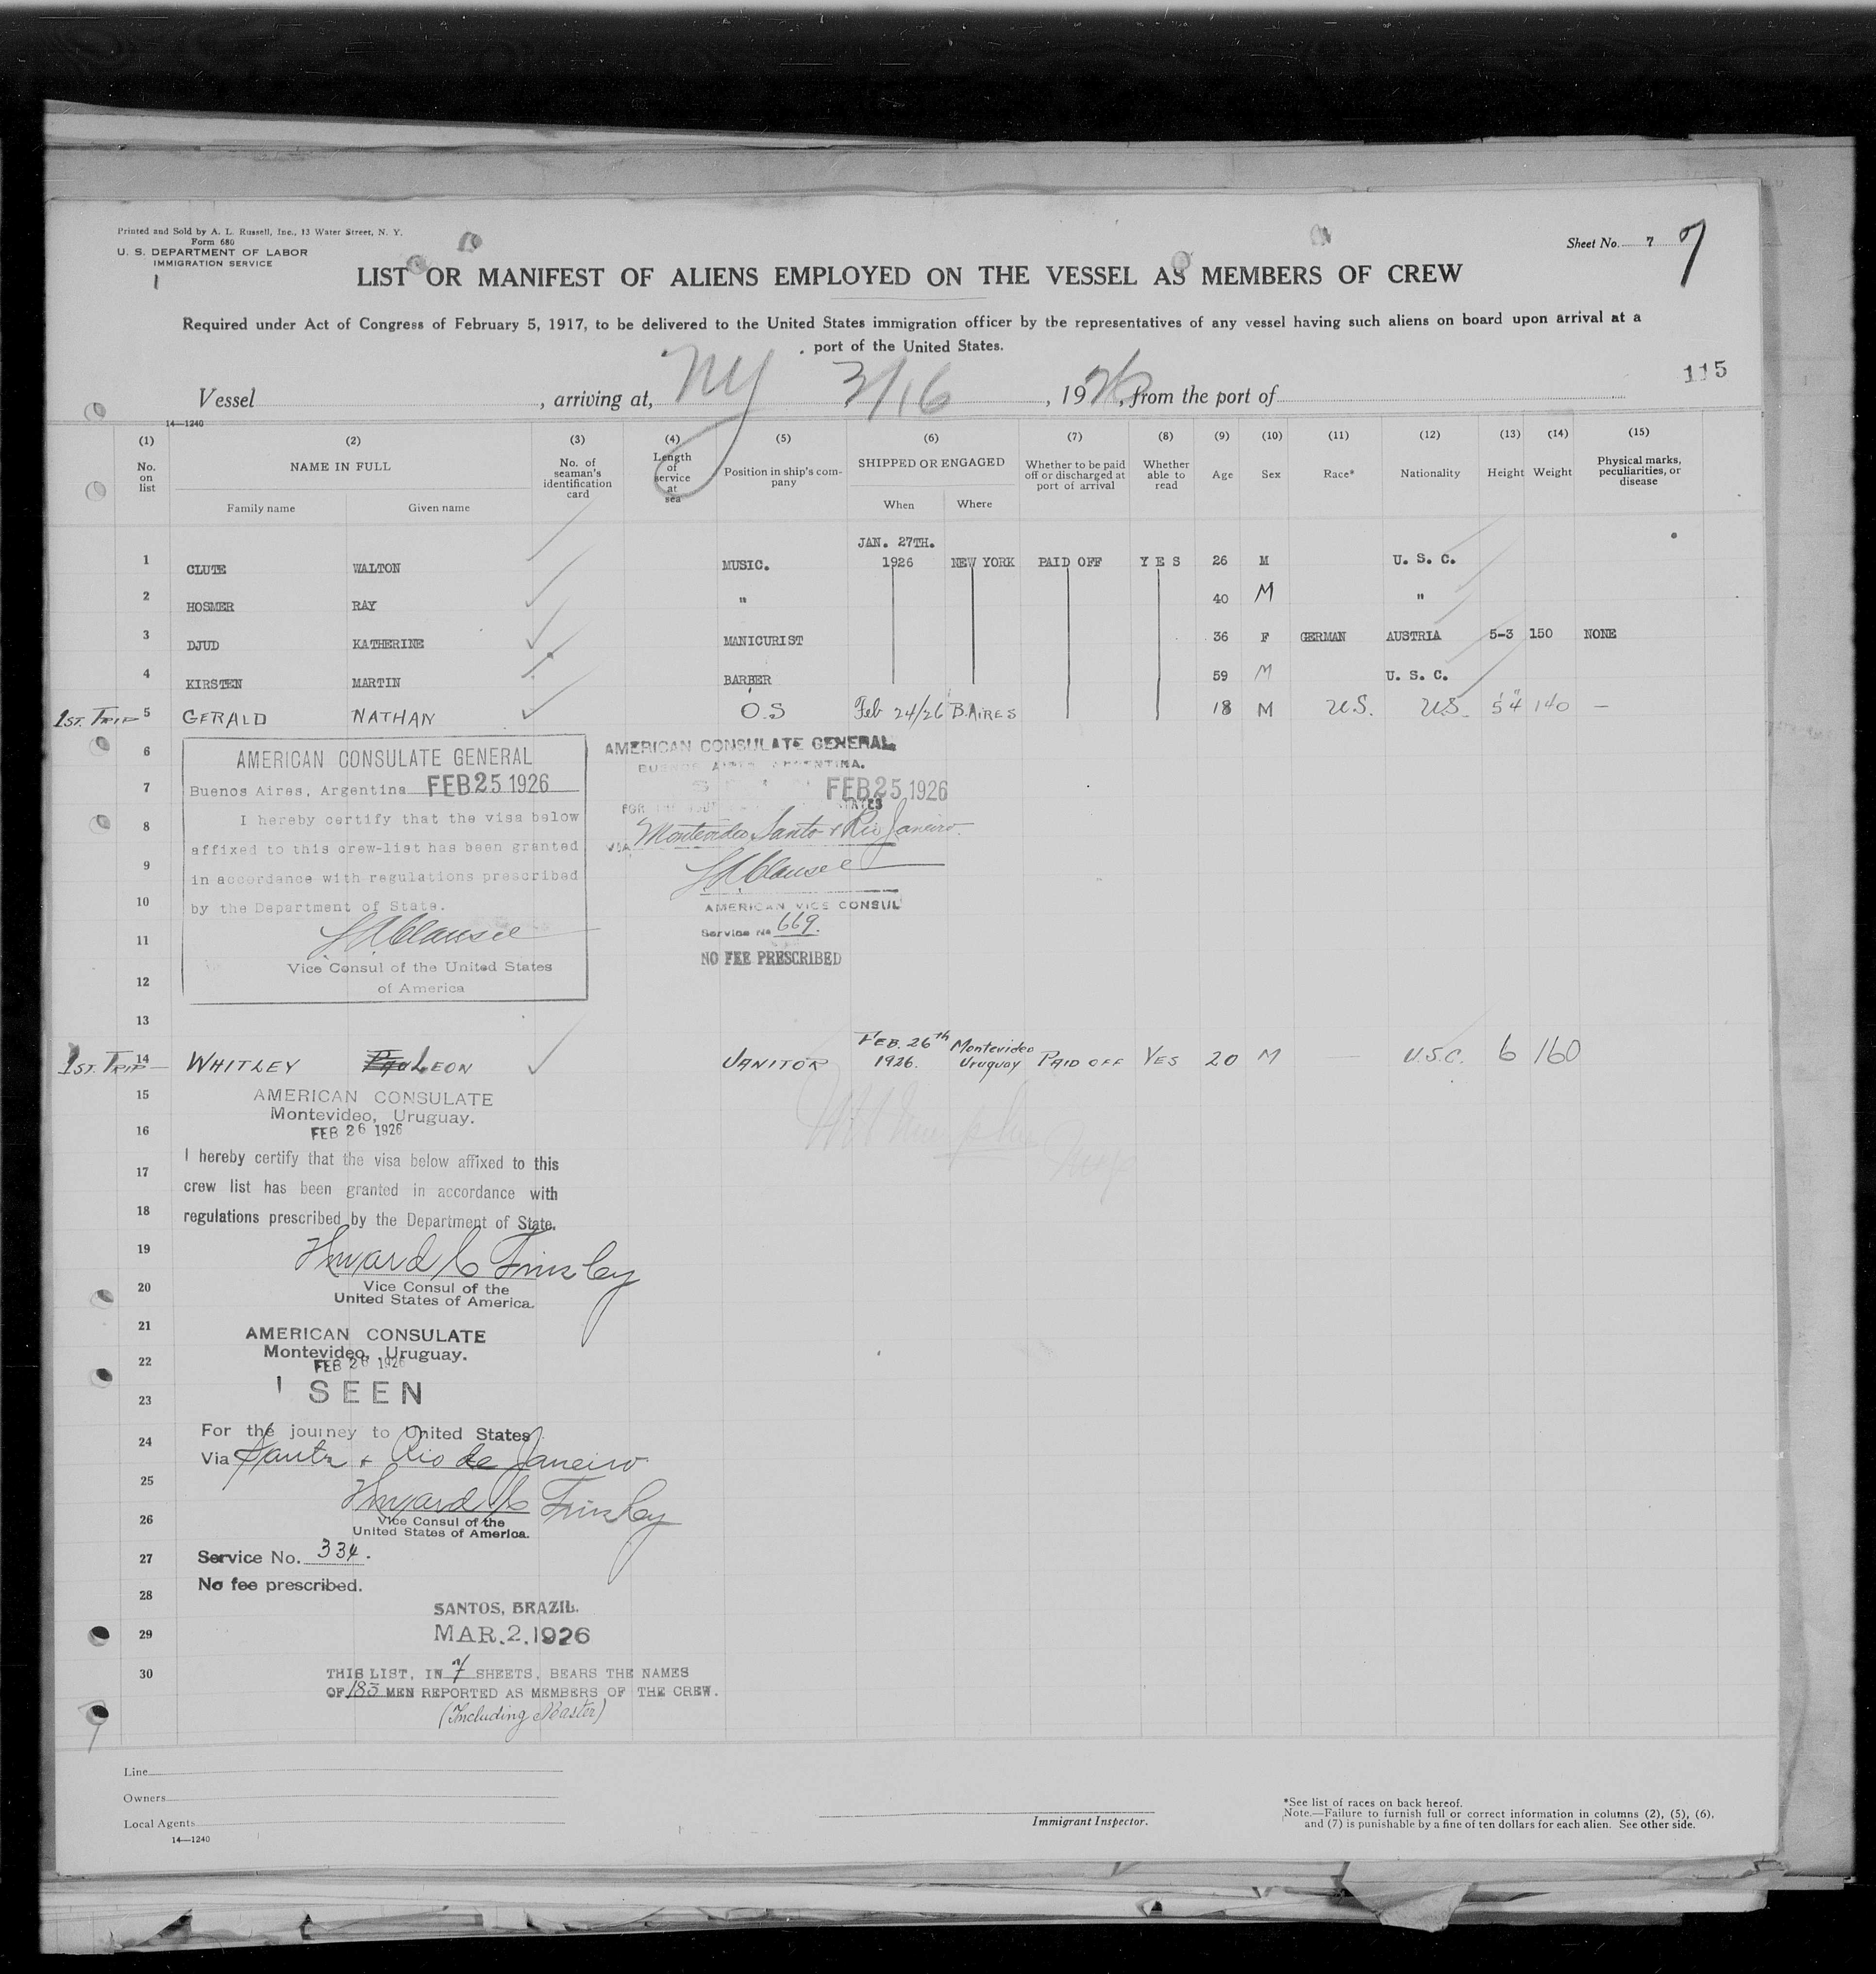 Printed and Sold by A. L. Russell, Inc., 13 Water Street, N. Y.
Form 680
U. S. DEPARTMENT OF LABOR
IMMIGRATION SERVICE
Sheet No. 7 7
LIST OR MANIFEST OF ALIENS EMPLOYED ON THE VESSEL AS MEMBERS OF CREW
Required under Act of Congress of February 5, 1917, to be delivered to the United States immigration officer by the representatives of any vessel having such aliens on board upon arrival at a
port of the United States.
115
Vessel , arriving at, NY 3/16 , 1926, from the port of
14—1240
(1) (2) (3) (4) (5) (6) (7) (8) (9) (10) (11) (12) (13) (14) (15)
No. on list NAME IN FULL No. of seaman's identification card Length of service at sea Position in ship's company SHIPPED OR ENGAGED Whether to be paid off or discharged at port of arrival Whether able to read Age Sex Race* Nationality Height Weight Physical marks, peculiarities, or disease
Family name Given name When Where
JAN. 27TH.
1 CLUTE WALTON MUSIC. 1926 NEW YORK PAID OFF YES 26 M U. S. C.
2 HOSMER RAY " 40 M "
3 DJUD KATHERINE MANICURIST 36 F GERMAN AUSTRIA 5-3 150 NONE
4 KIRSTEN MARTIN BARBER 59 M U. S. C.
1ST. TRIP 5 GERALD NATHAN O.S Feb 24/26 B.AIRES 18 M U.S. U.S. 5'4" 140 —
6
7
8
9
10
11
12
13
AMERICAN CONSULATE GENERAL
Buenos Aires, Argentina FEB 25 1926
I hereby certify that the visa below
affixed to this crew-list has been granted
in accordance with regulations prescribed
by the Department of State.
Vice Consul of the United States
of America
AMERICAN CONSULATE GENERAL
BUENOS AIRES, ARGENTINA.
FEB 25 1926
FOR STATES
VIA Montevideo Santo + Rio Janeiro.
AMERICAN VICE CONSUL
Service No 669.
NO FEE PRESCRIBED
1ST. TRIP 14 WHITLEY LEON JANITOR FEB. 26th 1926. Montevideo Uruguay PAID OFF YES 20 M — U.S.C. 6 160
15
16
17
18
19
20
21
22
23
24
25
26
27
28
29
30
AMERICAN CONSULATE
Montevideo, Uruguay.
FEB 26 1926
I hereby certify that the visa below affixed to this
crew list has been granted in accordance with
regulations prescribed by the Department of State.
Vice Consul of the
United States of America.
AMERICAN CONSULATE
Montevideo, Uruguay.
FEB 26 1926
SEEN
For the journey to United States
Via Santos + Rio de Janeiro
Vice Consul of the
United States of America.
Service No. 334.
No fee prescribed.
SANTOS, BRAZIL.
MAR. 2. 1926
THIS LIST, IN 7 SHEETS, BEARS THE NAMES
OF 183 MEN REPORTED AS MEMBERS OF THE CREW.
(Including Master)
Line
Owners
Local Agents
14—1240
Immigrant Inspector.
*See list of races on back hereof.
Note.—Failure to furnish full or correct information in columns (2), (5), (6),
and (7) is punishable by a fine of ten dollars for each alien. See other side.